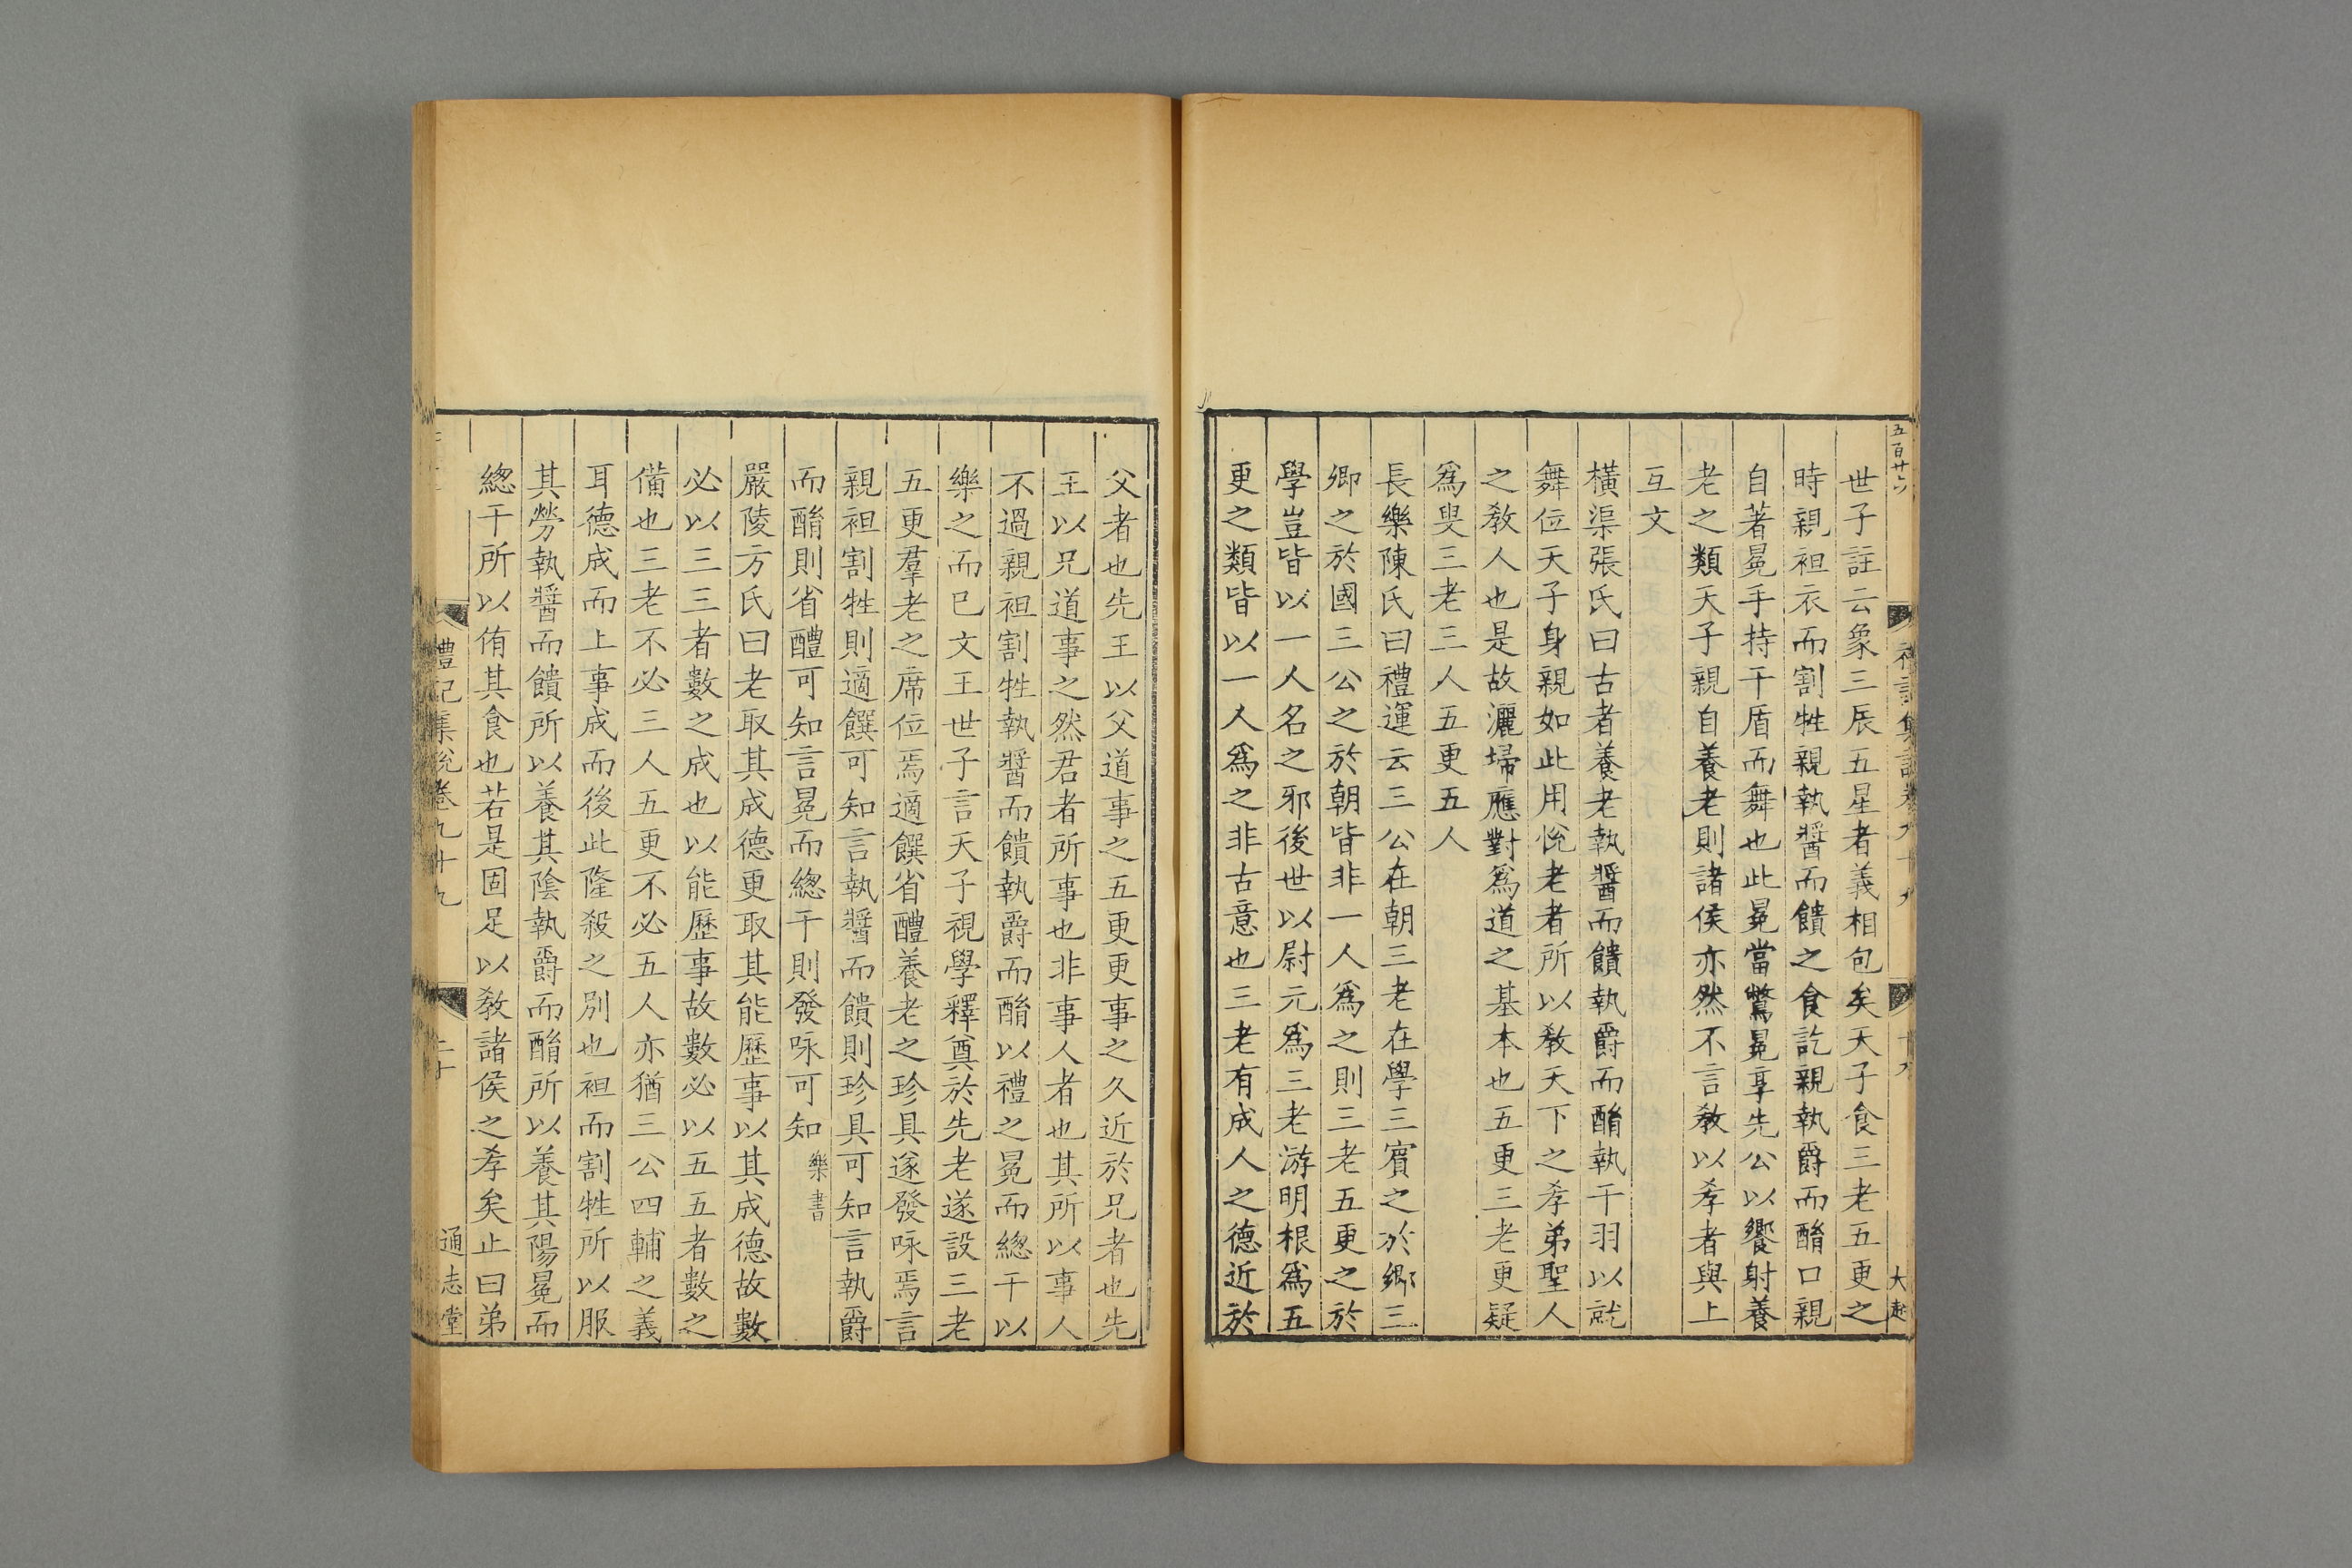 五百廿六
大
世子註云象三辰五星者義相包矣天子食三老五更之
時親袒衣而割牲親執醬而饋之食訖親執爵而酳口親
自著冕手持干盾而舞也此冕當鷩冕享先公以饗射養
老之類天子親自養老則諸侯亦然不言教以孝者與上
互文
橫渠張氏曰古者養老執醬而饋執爵而酳執干羽以就
舞位天子身親如此用悅老者所以教天下之孝弟聖人
之教人也是故灑埽應對爲道之基本也五更三老更疑
爲叟三老三人五更五人
長樂陳氏曰禮運云三公在朝三老在學三賓之於鄉三
卿之於國三公之於朝皆非一人爲之則三老五更之於
學豈皆以一人名之邪後世以尉元爲三老游明根爲五
更之類皆以一人爲之非古意也三老有成人之德近於
父者也先王以父道事之五更更事之久近於兄者也先
王以兄道事之然君者所事也非事人者也其所以事人
不過親袒割牲執醬而饋執爵而酳以禮之冕而緫干以
樂之而巳文王世子言天子視學釋奠於先老遂設三老
五更羣老之席位焉適饌省醴養老之珍具遂發咏焉言
親袒割牲則適饌可知言執醬而饋則珍具可知言執爵
而酳則省醴可知言冕而緫干則發咏可知樂書
嚴陵方氏曰老取其成德更取其能歷事以其成德故數
必以三三者數之成也以能歷事故數必以五五者數之
備也三老不必三人五更不必五人亦猶三公四輔之義
耳德成而上事成而後此隆殺之別也袒而割牲所以服
其勞執醬而饋所以養其陰執爵而酳所以養其陽冕而
緫干所以侑其食也若是固足以教諸侯之孝矣止曰弟
禮記集說卷九十九 二十 通志堂